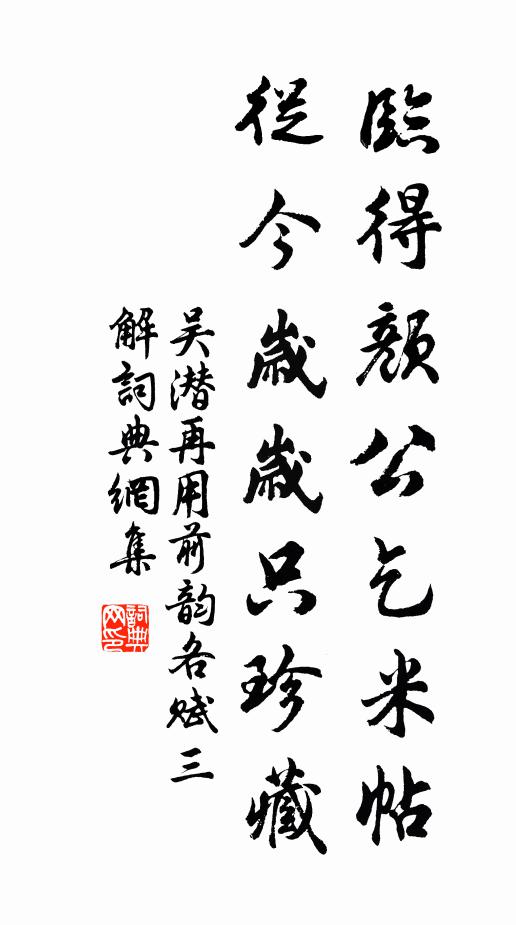 臨得顏公乞米帖
從今歲歲只珍藏
吳潛再用前韵各賦三
解詞典網集
詞典
网印